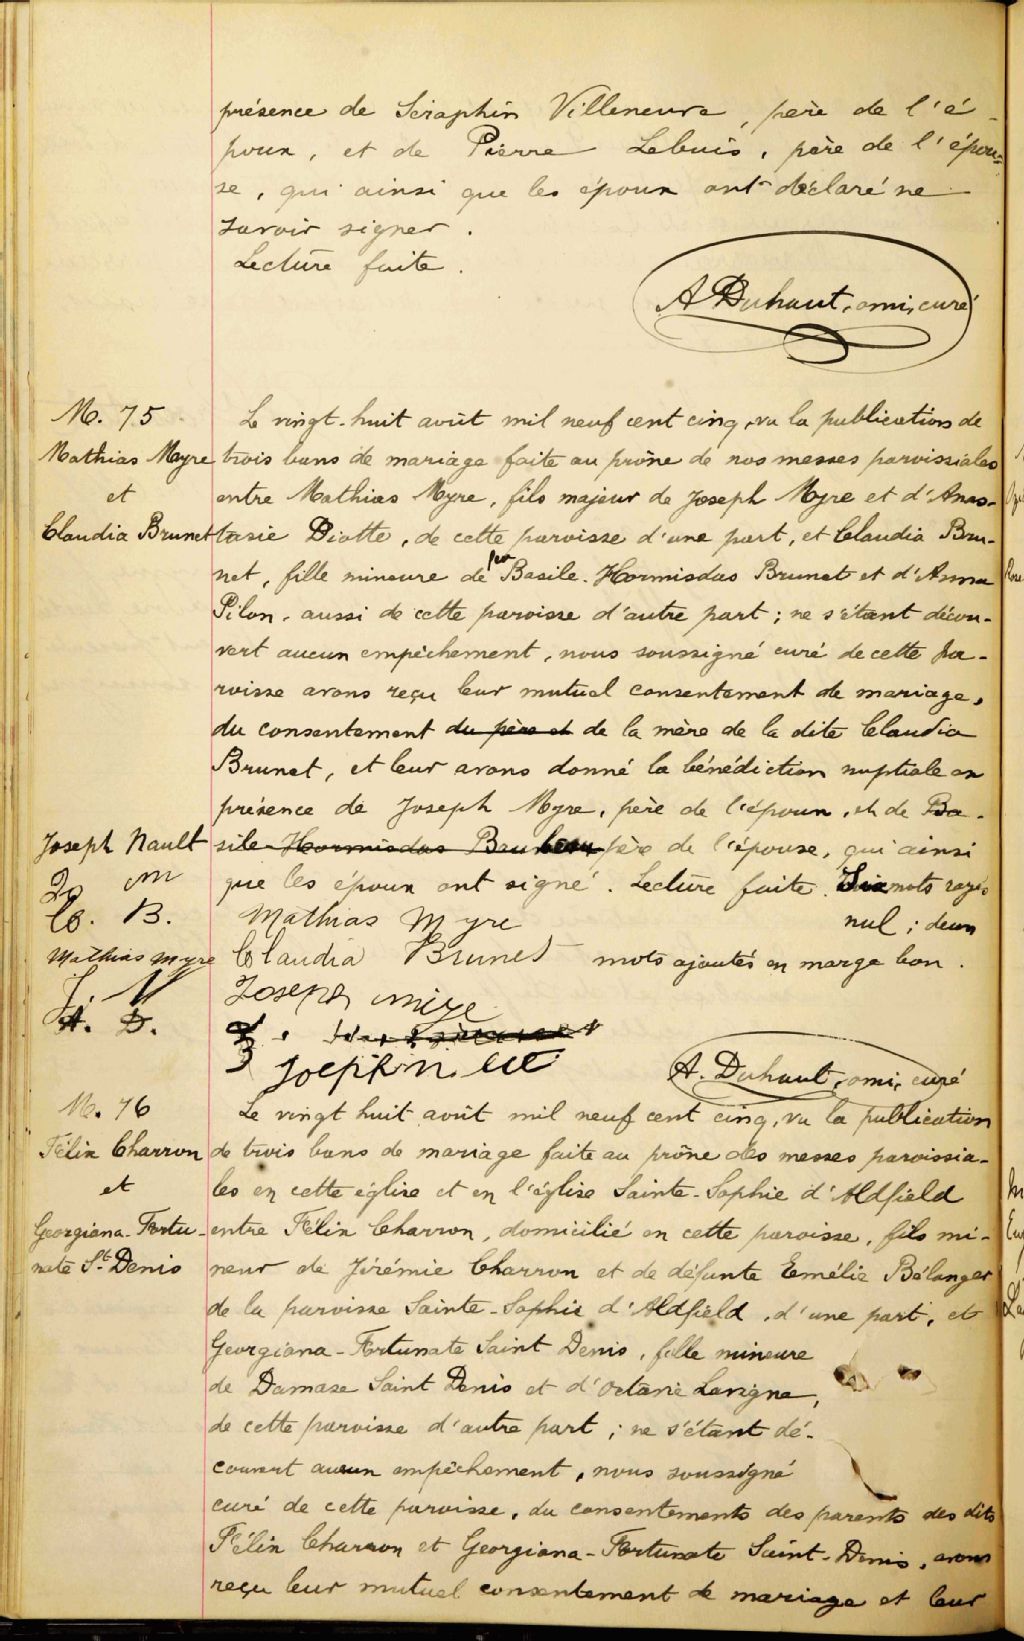 présence de Séraphin Villeneuve, père de l'é-
poux, et de Pierre Lebuis, père de l'épou-
se, qui ainsi que les époux ont déclaré ne
savoir signer.
Lecture faite.
A Duhaut, omi, curé
M. 75
Mathias Myre
et
Claudia Brunet
Le vingt-huit août mil neuf cent cinq, vu la publication de
trois bans de mariage faite au prône de nos messes paroissiales
entre Mathias Myre, fils majeur de Joseph Myre et d'Anas-
tasie Diotte, de cette paroisse d'une part, et Claudia Bru-
net, fille mineure de feu Basile-Hormisdas Brunet et d'Anna
Pilon, aussi de cette paroisse d'autre part; ne s'étant décou-
vert aucun empêchement, nous soussigné curé de cette pa-
roisse avons reçu leur mutuel consentement de mariage,
du consentement du père et de la mère de la dite Claudia
Brunet, et leur avons donné la bénédiction nuptiale en
présence de Joseph Myre, père de l'époux, et de Ba-
sile-Hormisdas père de l'épouse, qui ainsi
que les époux ont signé. Lecture faite. Six mots rayés
nul; deux
mots ajoutés en marge bon.
Joseph Nault
Jo m
C. B.
Mathias Myre
J. N
A. D.
Mathias Myre
Claudia Brunet
Joseph mire
A. Duhaut, omi, curé
M. 76
Félix Charron
et
Georgiana-Fortu-
nate St. Denis
Le vingt huit août mil neuf cent cinq, vu la publication
de trois bans de mariage faite au prône des messes paroissia-
les en cette église et en l'église Sainte-Sophie d'Aldfield
entre Félix Charron, domicilié en cette paroisse, fils mi-
neur de Jérémie Charron et de défunte Emélie Bélanger
de la paroisse Sainte-Sophie d'Aldfield, d'une part, et
Georgiana-Fortunate Saint Denis, fille mineure
de Damase Saint Denis et d'Octavie Lavigne,
de cette paroisse d'autre part; ne s'étant dé-
couvert aucun empêchement, nous soussigné
curé de cette paroisse, du consentements des parents des dits
Félix Charron et Georgiana-Fortunate Saint-Denis, avons
reçu leur mutuel consentement de mariage et leur